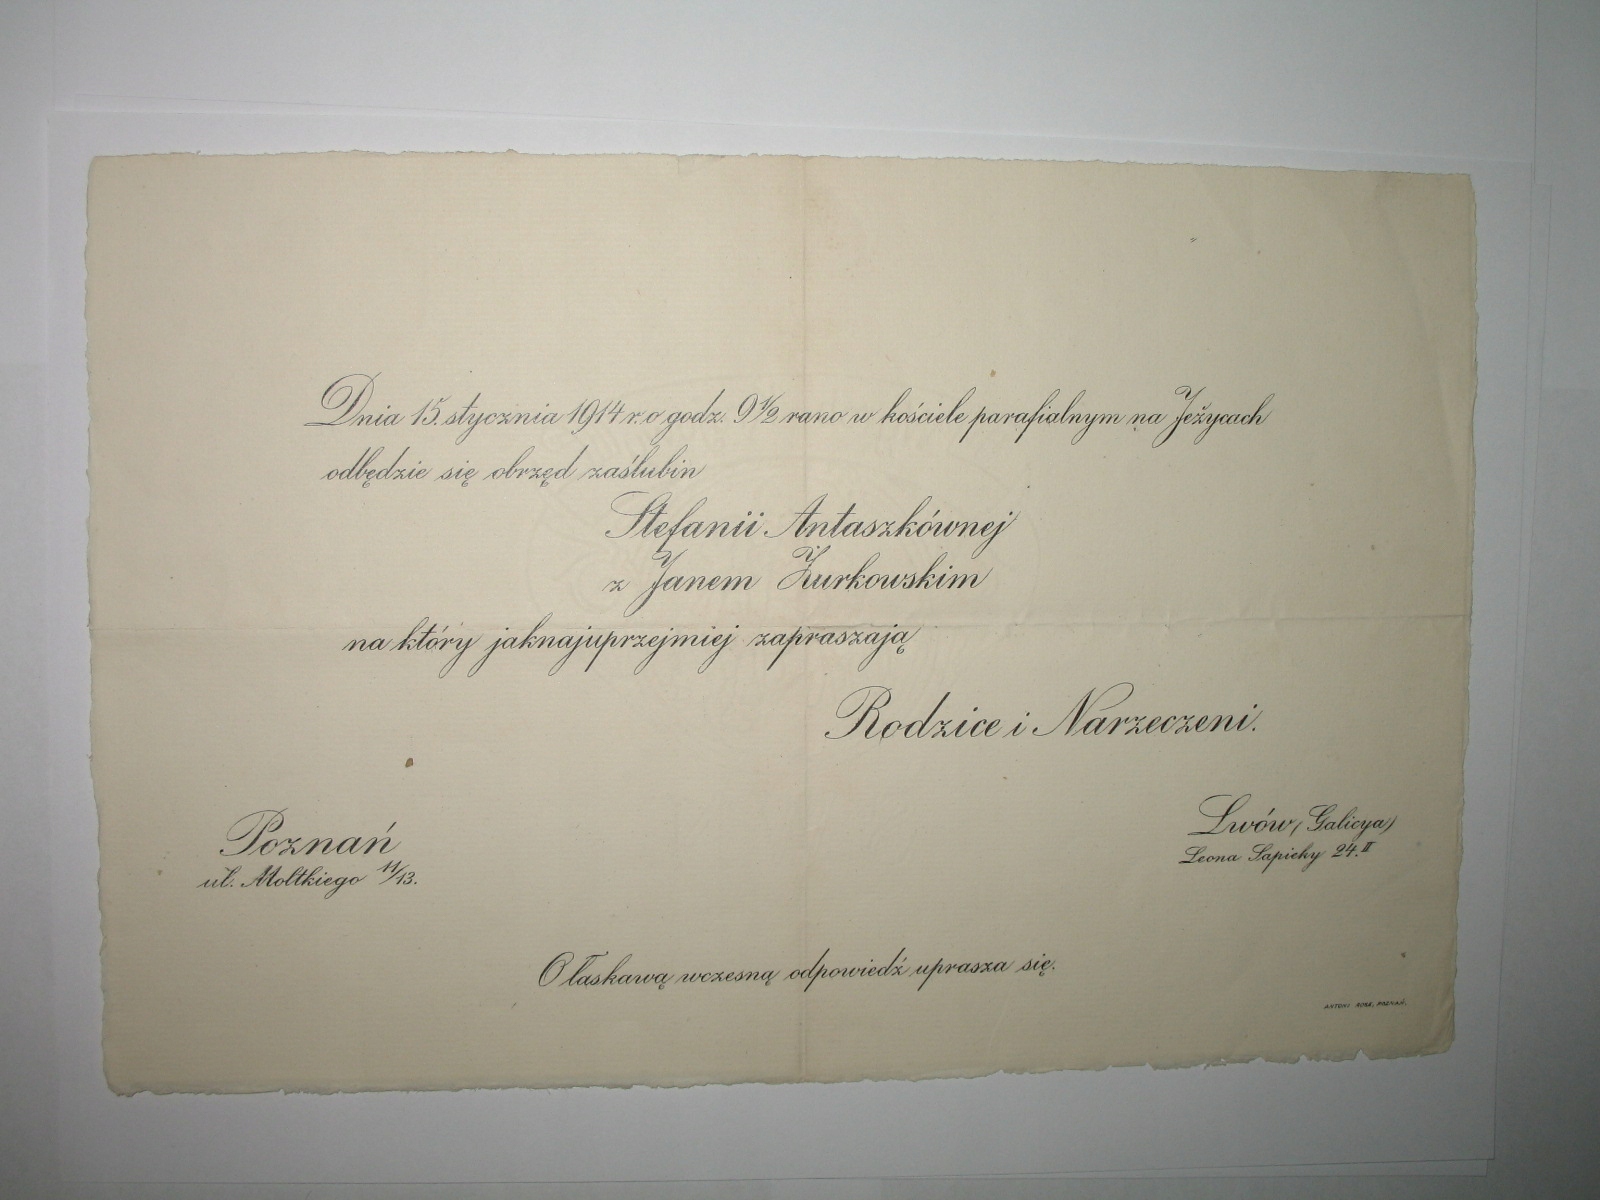 Dnia 15. stycznia 1914 r. o godz. 9½ rano w kościele parafialnym na Jeżycach
odbędzie się obrzęd zaślubin
Stefanii Antaszkównej
z Janem Żurkowskim
na który jaknajuprzejmiej zapraszają
Rodzice i Narzeczeni.
Poznań
ul. Moltkiego 11/13.
Lwów (Galicya)
Leona Sapiehy 24. II
O łaskawą wczesną odpowiedź uprasza się.
ANTONI ROSE, POZNAŃ.